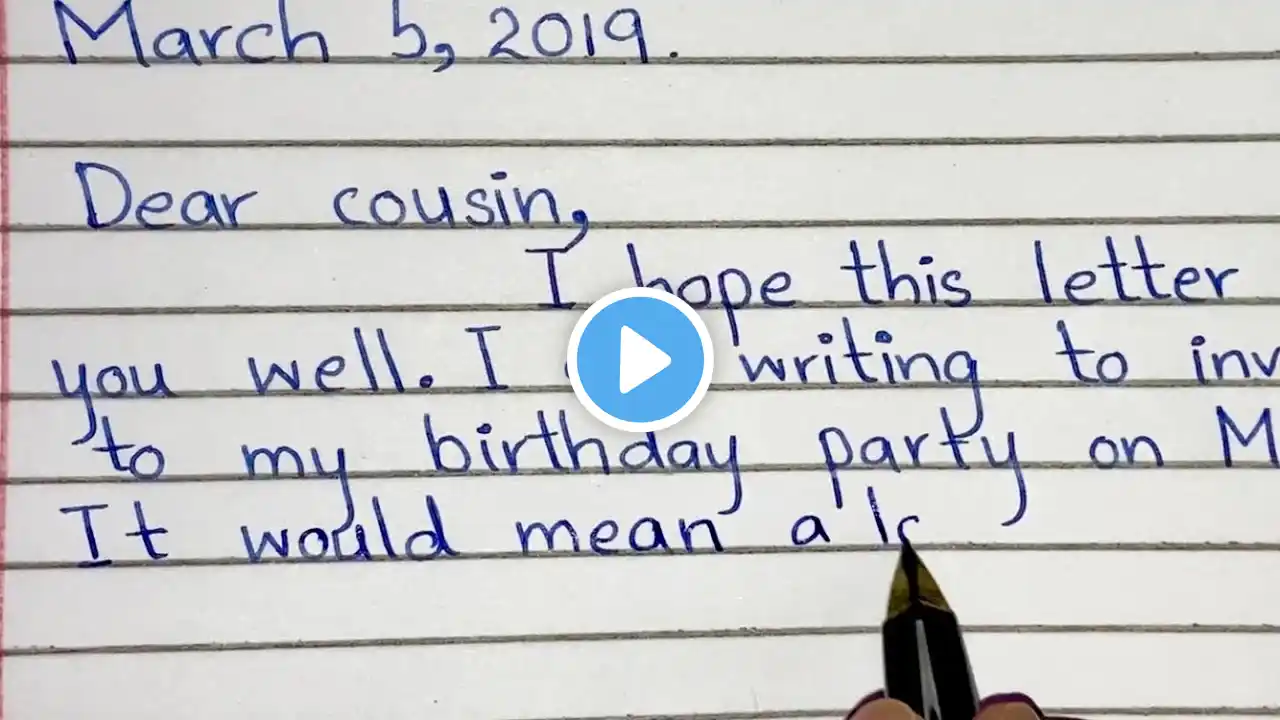 March 5, 2019.
Dear cousin,
I hope this letter
you well. I writing to inv
to my birthday party on M
It would mean a lo